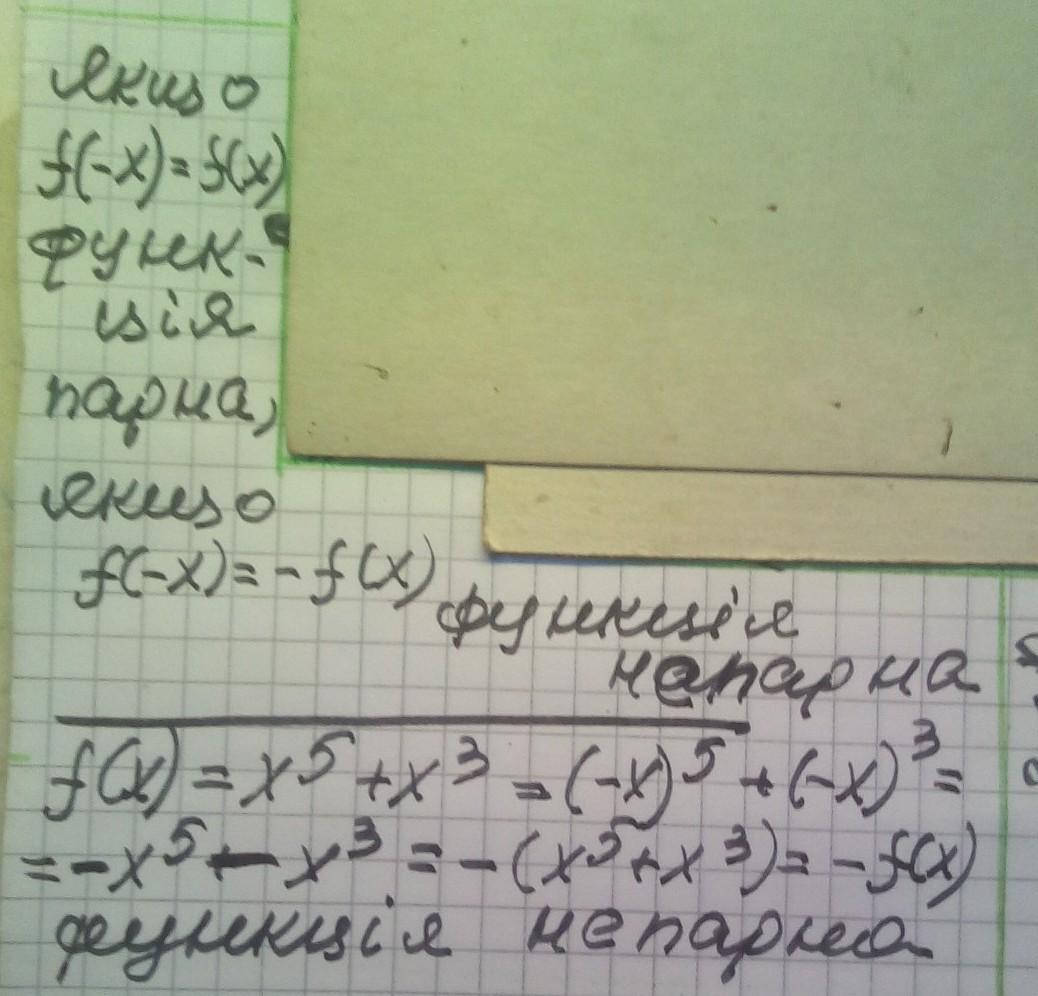 якщо
f(-x)=f(x)
функ-
ція
парна,
якщо
f(-x)=-f(x)
функція
непарна
f(x)=x⁵+x³=(-x)⁵+(-x)³=
=-x⁵-x³=-(x⁵+x³)=-f(x)
функція непарна